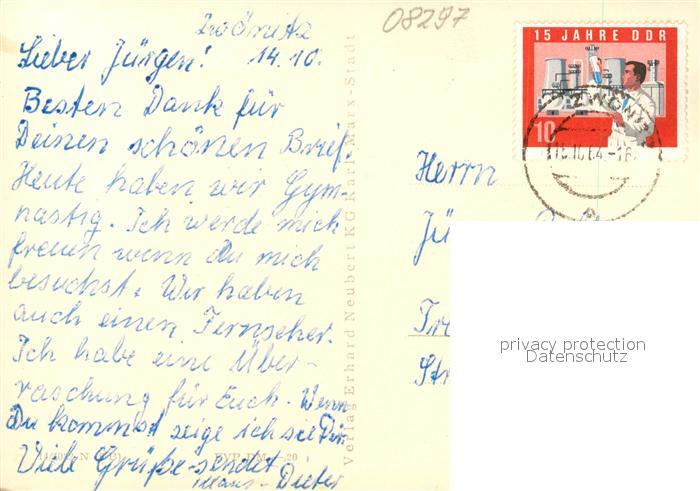 Zschönitz
Lieber Jürgen! 14.10.
Besten Dank für
Deinen schönen Brief.
Heute haben wir Gym-
nastig. Ich werde mich
freuen wenn Du mich
besuchst. Wir haben
auch einen Fernseher.
Ich habe eine Über-
raschung für Euch. Wenn
Du kommst zeige ich sie Dir.
Viele Grüße sendet
Hans-Dieter
Verlag Erhard Neubert KG Karl-Marx-Stadt
08297
15 JAHRE DDR
10
Herrn
Jü
Tre
Str
privacy protection
Datenschutz